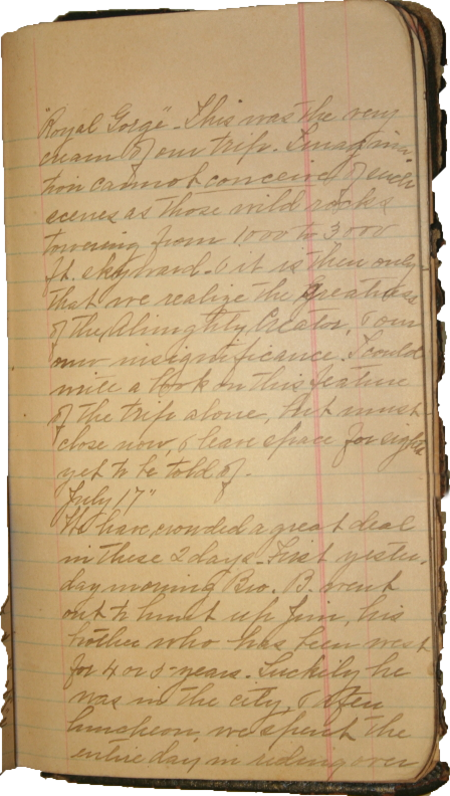 "Royal Gorge" - This was the very
cream of our trip. Imagina
tion cannot conceive of such
scenes as those wild rocks
towering from 1000 to 3000
ft. skyward. & it is then only
that we realize the greatness
of the Almighty Creator, & our
own insignificance. I could
write a book on this feature
of the trip alone, but must
close now, & leave space for sights
yet to be told of.
July 17"
We have crowded a great deal
in these 2 days - First yester-
day morning Bro. B. went
out to hunt up Jim, his
brother who has been west
for 4 or 5 years. Luckily he
was in the city, & after
luncheon, we spent the
entire day in riding over